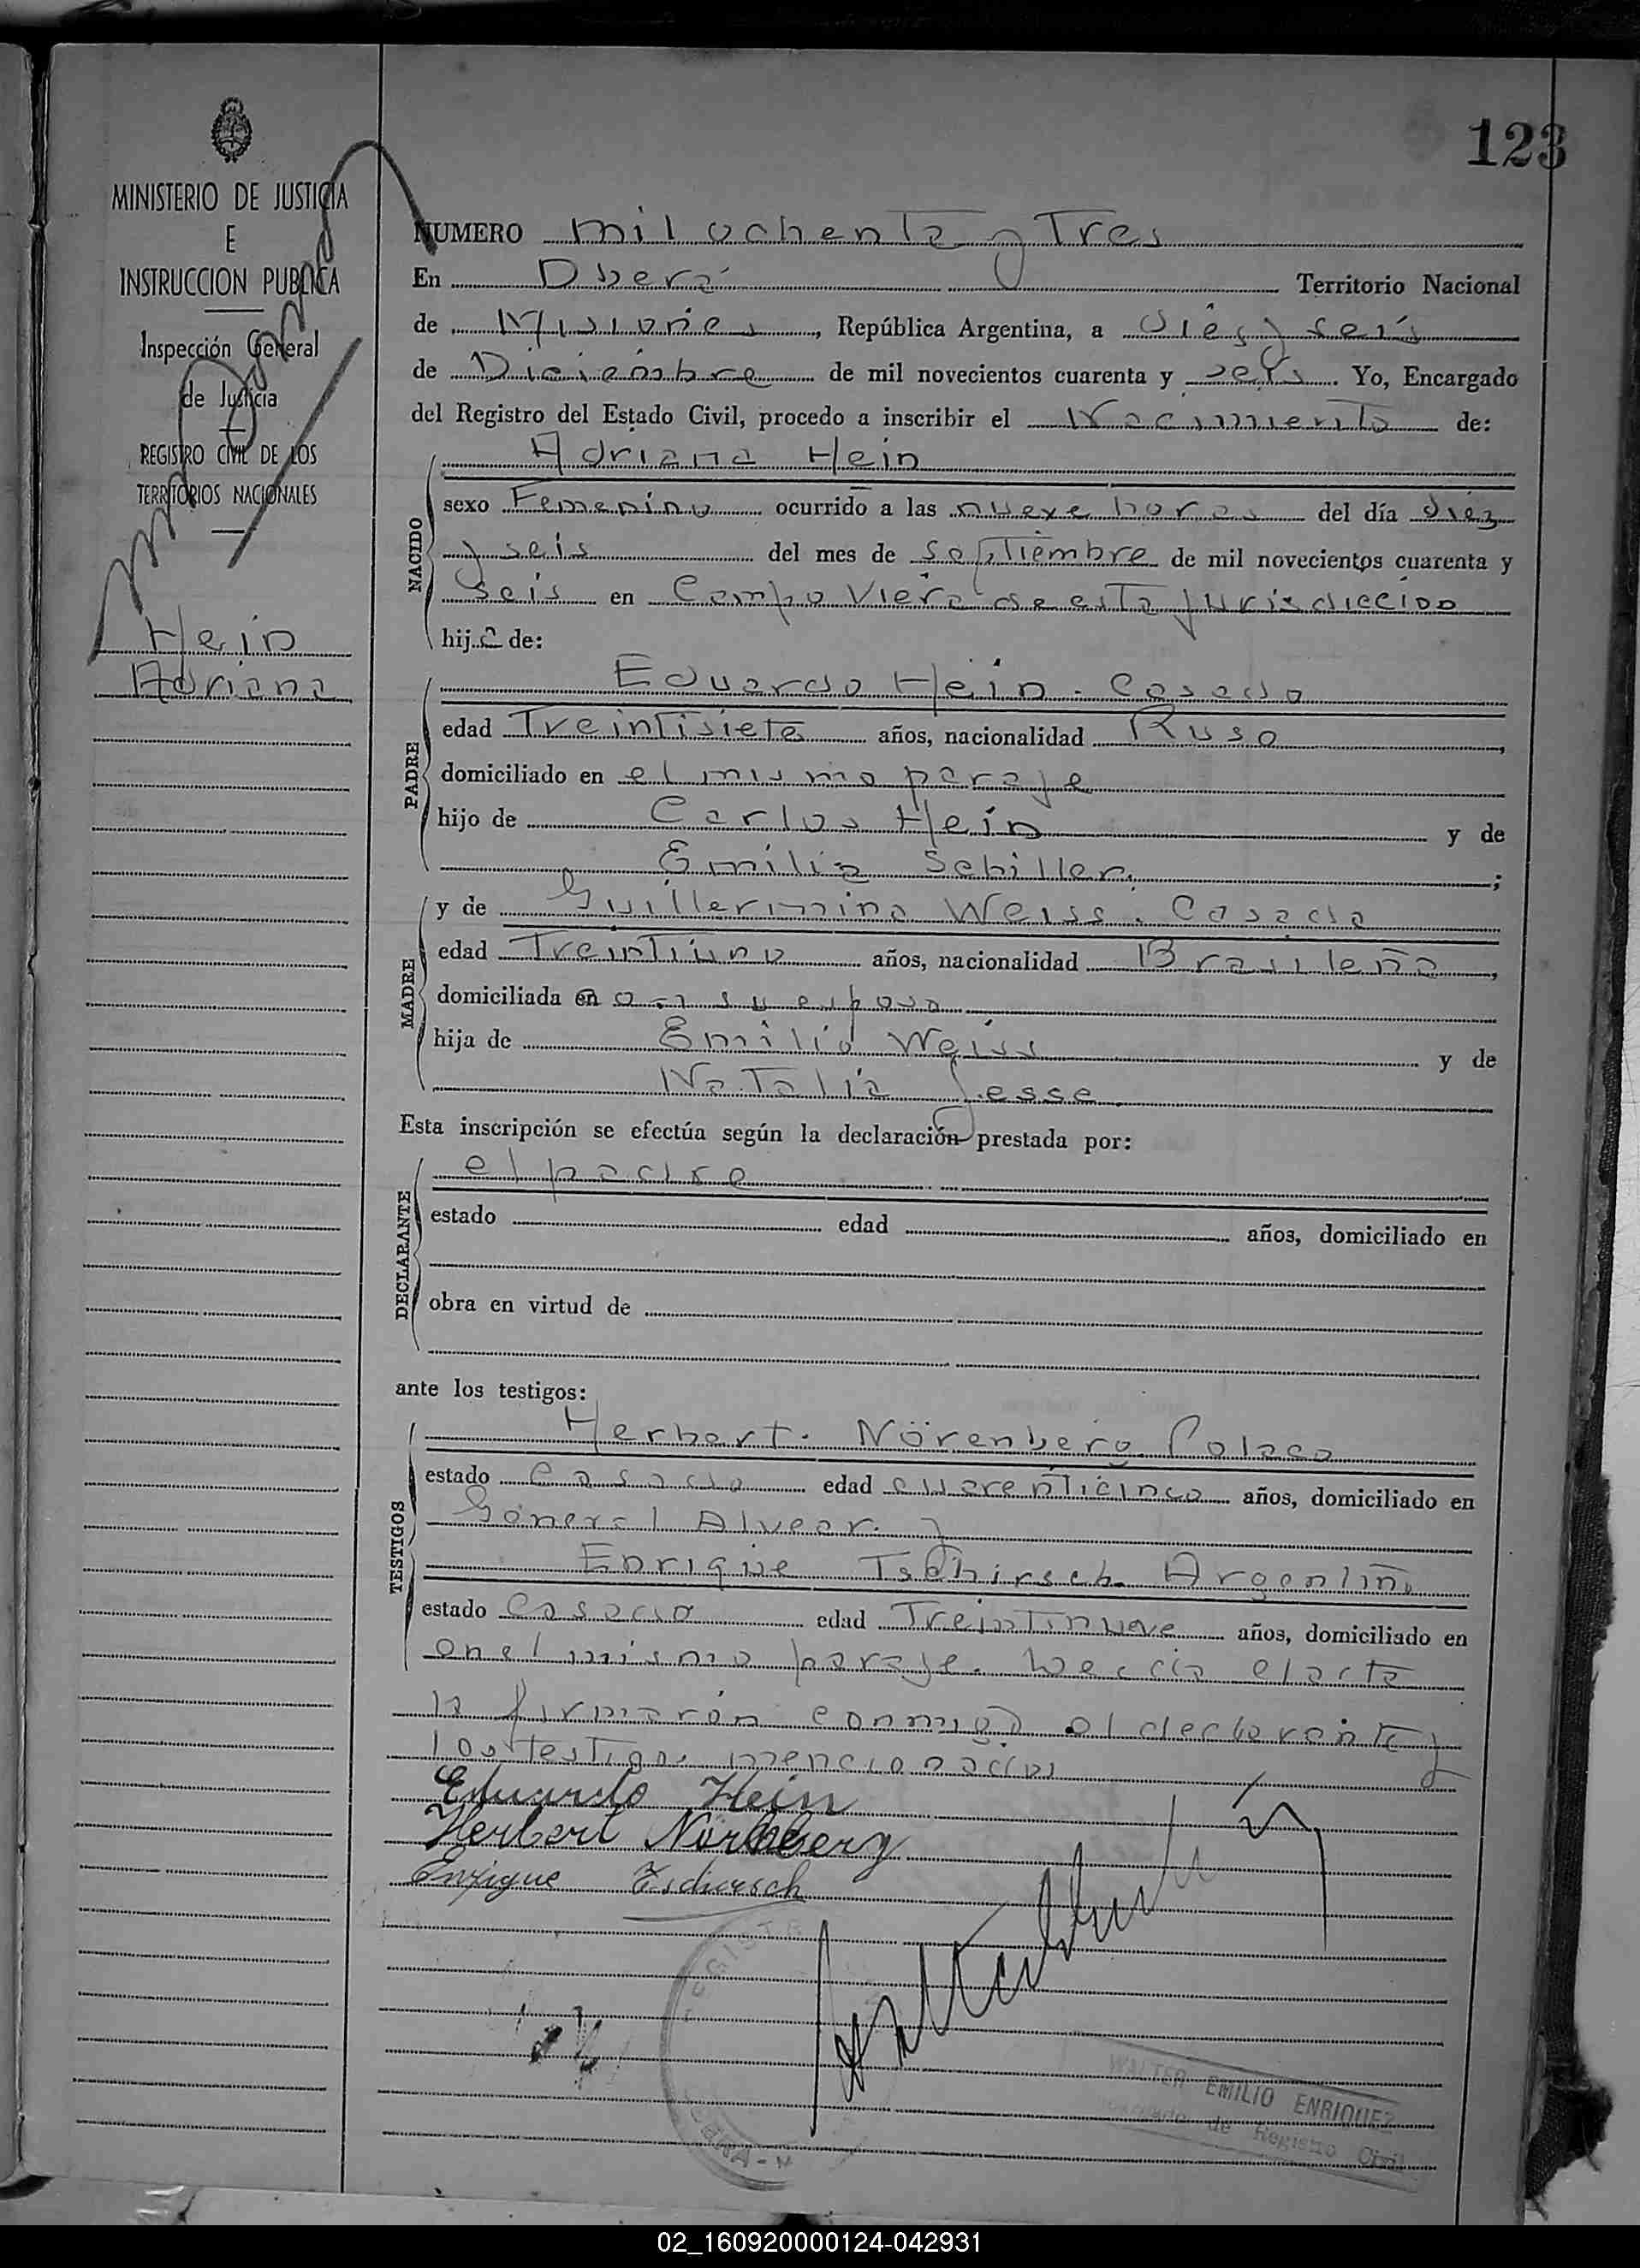 123
MINISTERIO DE JUSTICIA
E
INSTRUCCION PUBLICA
Inspección General
de Justicia
REGISTRO CIVIL DE LOS
TERRITORIOS NACIONALES
Hein
Adriana
NUMERO mil ochenta y Tres
En Oberá Territorio Nacional
de Misiones, República Argentina, a diés y seis
de Diciembre de mil novecientos cuarenta y seis. Yo, Encargado
del Registro del Estado Civil, procedo a inscribir el Nacimiento de:
NACIDO
Adriana Hein
sexo Femenino ocurrido a las nueve horas del día diez
y seis del mes de Septiembre de mil novecientos cuarenta y
seis en Campo Viera de esta jurisdiccion
hija de:
PADRE
Eduardo Hein. Casado
edad Treintisiete años, nacionalidad Ruso,
domiciliado en el mismo paraje
hijo de Carlos Hein y de
Emilia Schiller.;
MADRE
y de Guillermina Weiss. Casada
edad Treintiuno años, nacionalidad Brasileña,
domiciliada en su esposo
hija de Emilio Weiss y de
Natalia Jesse.
Esta inscripción se efectúa según la declaración prestada por:
DECLARANTE
el padre
estado edad años, domiciliado en
obra en virtud de
ante los testigos:
TESTIGOS
Herbert. Nörenberg. Polaco
estado Casado edad cuarenticinco años, domiciliado en
General Alvear. y
Enrique Tschirsch. Argentino
estado Casado edad Treintinueve años, domiciliado en
en el mismo paraje. Leida el acta
la firmarón conmigo el declarante y
los testigos mencionados
Eduardo Hein
Herbert Nörenberg
Enrique Tschirsch
WALTER EMILIO ENRIQUEZ
de Registro Civil
02_160920000124-042931